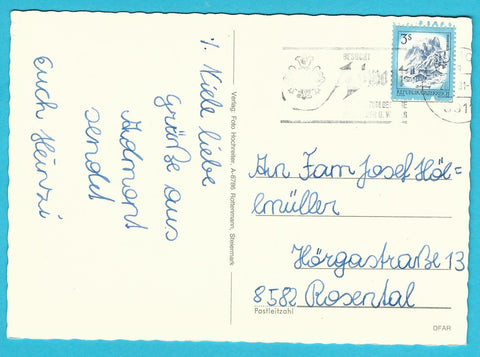 1/. Viele liebe
Grüße aus
Admont
sendet
euch Heinzi
Verlag: Foto Hochreiter, A-8786 Rottenmann, Steiermark
3S
REPUBLIK ÖSTERREICH
BESUCHT
An Fam Josef Höl=
lmüller
Hörgastraße 13
8582 Rosental
Postleitzahl
DFAR